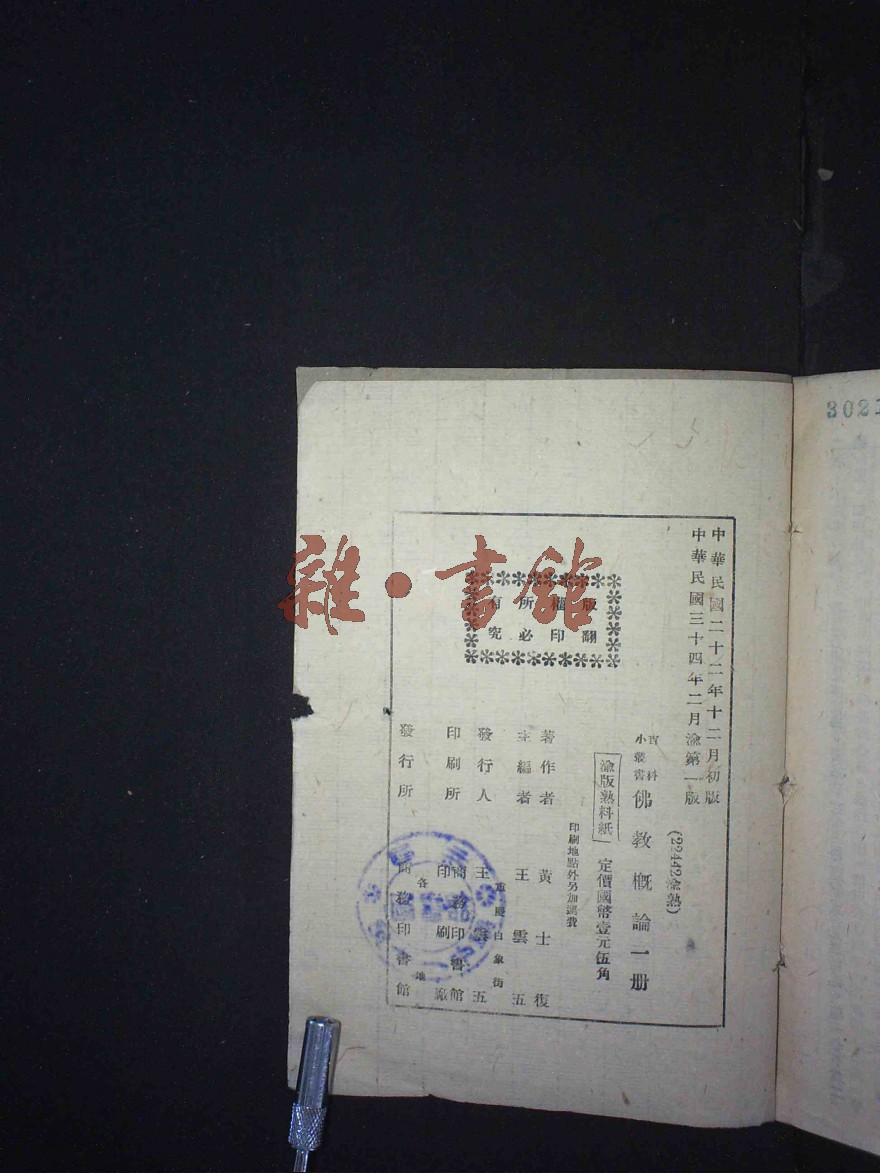 中華民國二十二年十二月初版
中華民國三十四年二月渝第一版
(22442渝熟)
百科
小叢書
佛教概論一册
渝版熟料紙
定價國幣壹元伍角
印刷地點外另加運費
版權所有
翻印必究
著作者 黃士復
主編者 王雲五
重慶白象街
發行人 王雲五
印刷所 商務印書館
印刷廠
發行所 各地
商務印書館
雜·書館
3021